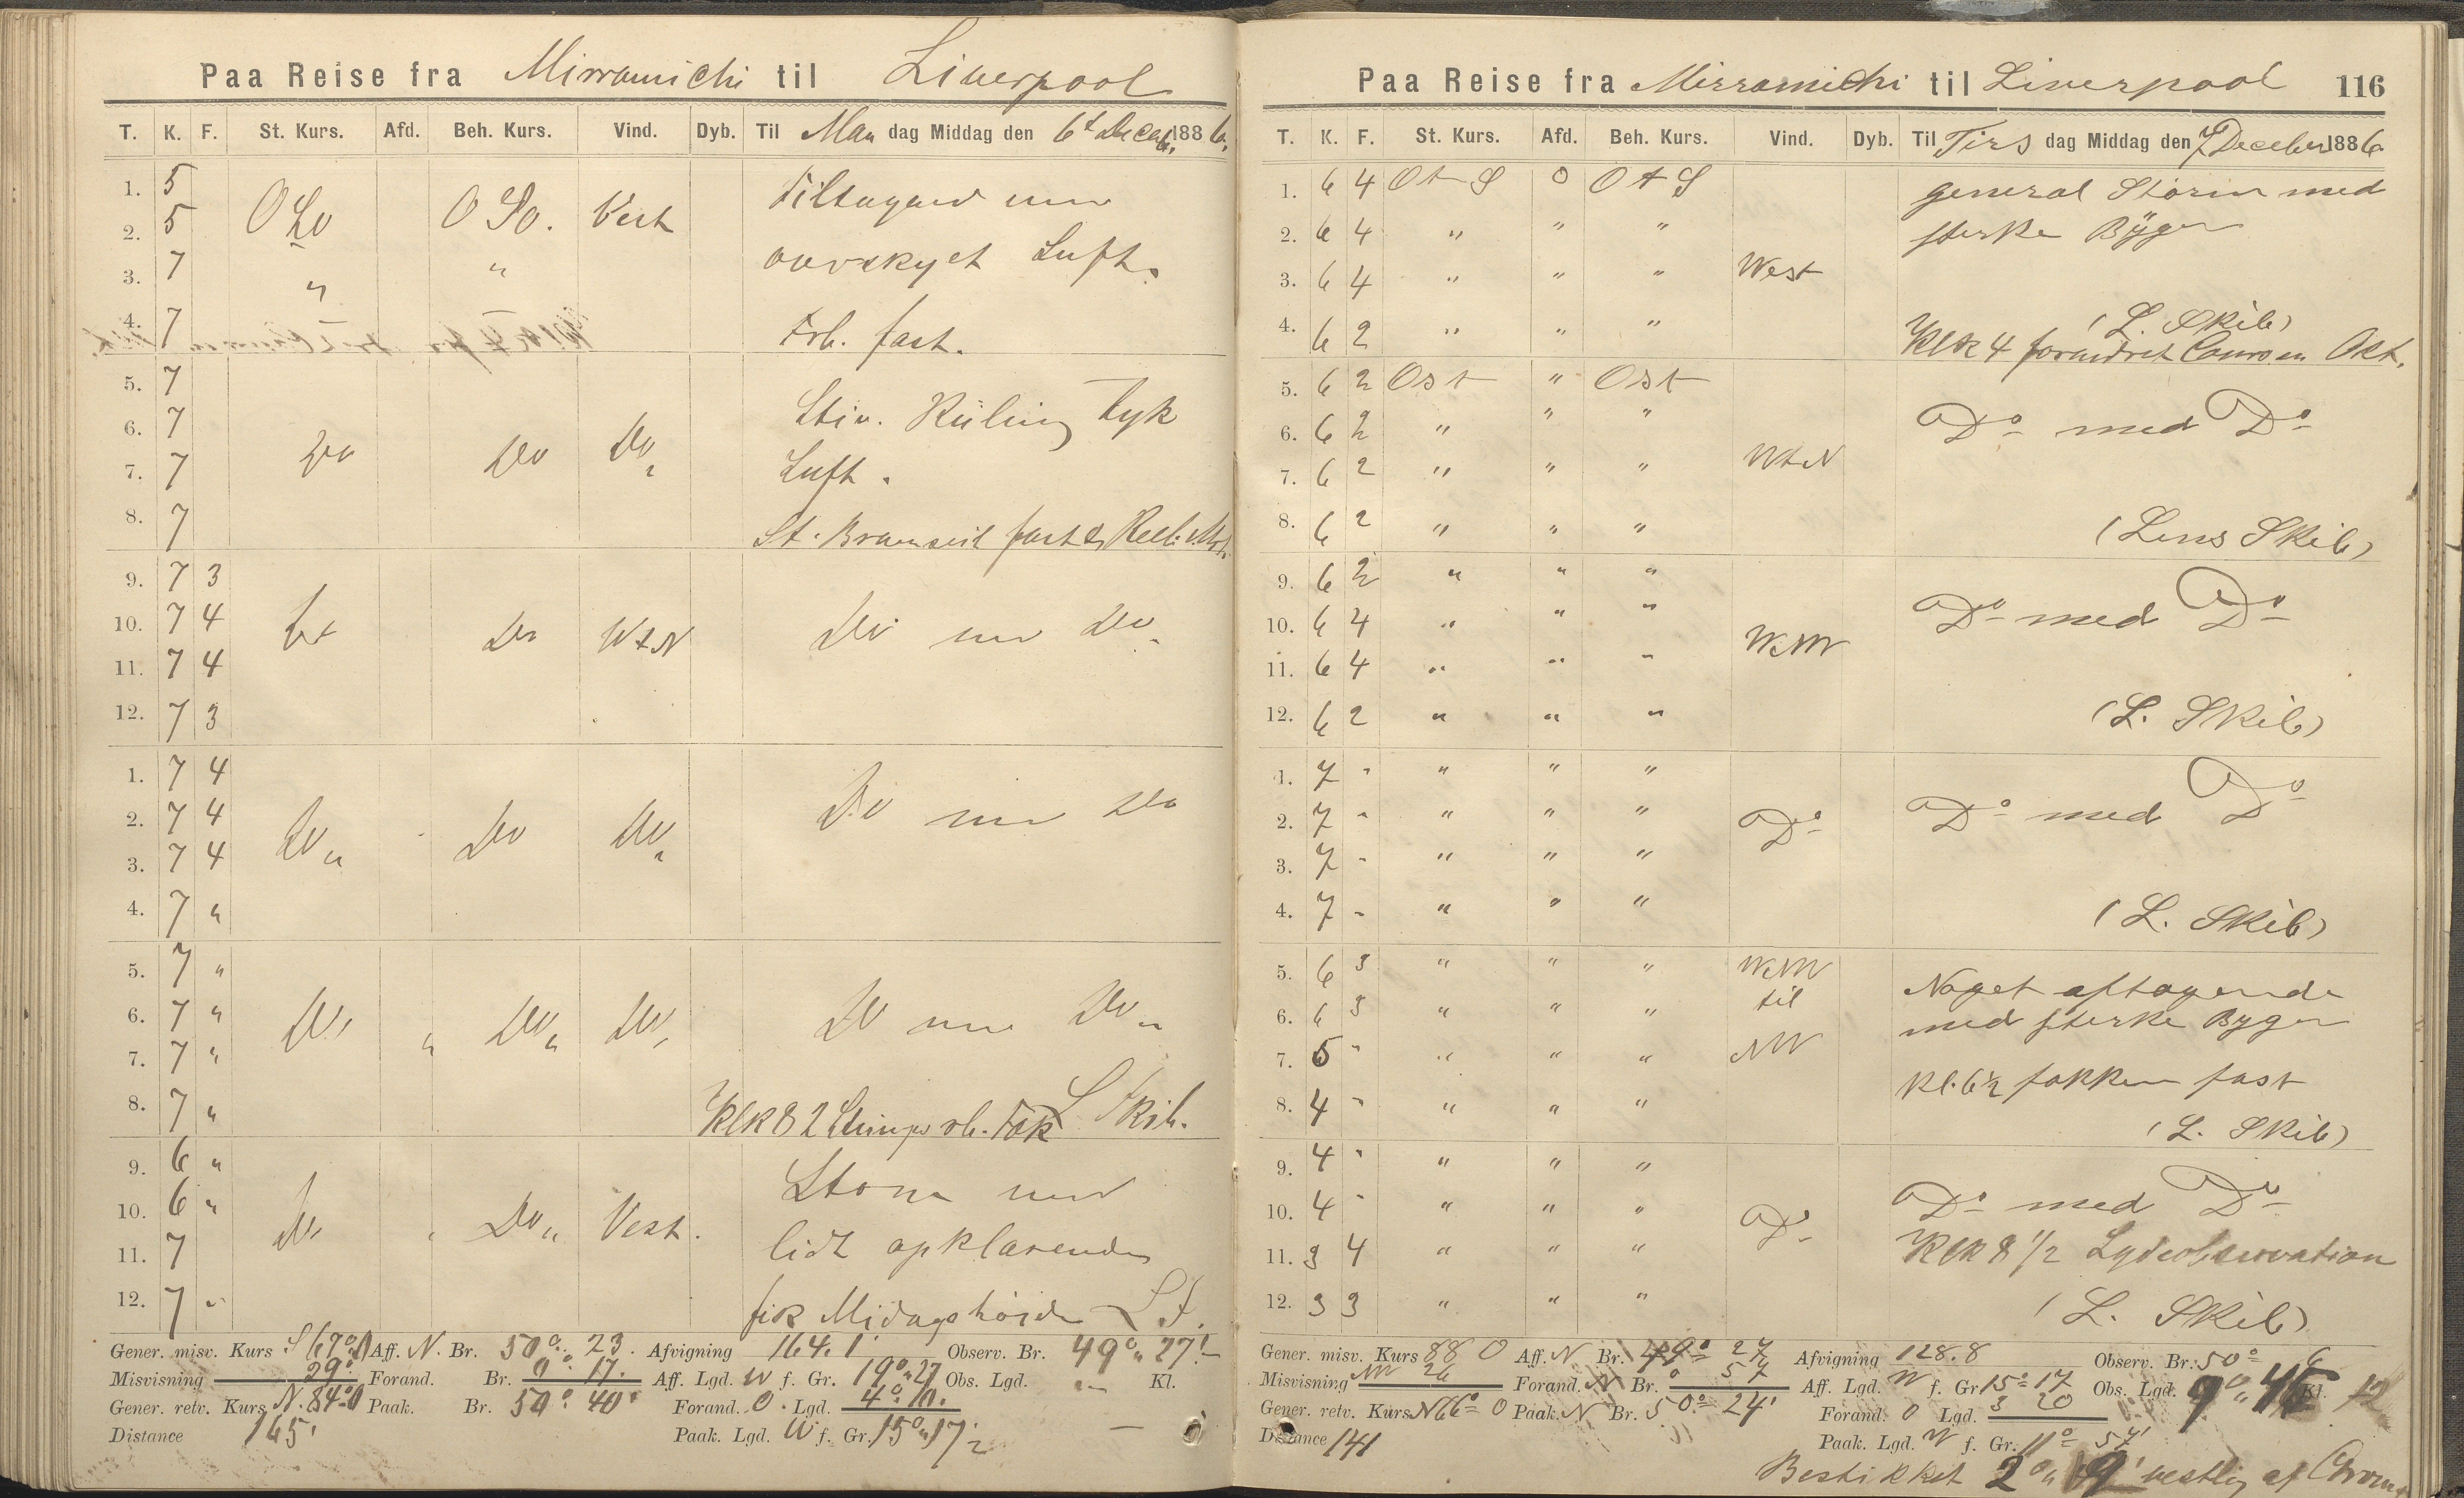 Paa Reise fra Mirramichi til Liverpool
T. K. F. St. Kurs. Afd. Beh. Kurs. Vind. Dyb. Til Man dag Middag den 6t Decemb. 1886.
1. 5 Tiltagend mm
2. 5 OSO OSO. Vest
3. 7 " " ovvskyet Luft.
4. 7 Frb. fast.
5. 7
6. 7 Stiv. Küling tyk
7. 7 Do Do Do Luft.
8. 7 St. Bramseil fast
9. 7 3
10. 7 4 Do Do WtN Do mm Do
11. 7 4
12. 7 3
1. 7 4
2. 7 4 Do mm Do
3. 7 4 Do " Do Do "
4. 7 "
5. 7 "
6. 7 " Do " Do " Do Do mm Do "
7. 7 "
8. 7 " Klk 8 2 rb. Fok L Skib.
9. 6 "
10. 6 " Do " Do " Vest. Storm mm
11. 7 lidt opklarende
12. 7 " fik Midagshöide L S.
Gener. misv. Kurs S 67° O Aff. N. Br. 50° 23. Afvigning 164.1 Observ. Br. 49° 27'
Misvisning 29° Forand. Br. 0° 17. Aff. Lgd. W f. Gr. 19° 27 Obs. Lgd. " Kl.
Gener. retv. Kurs N. 84° O Paak. Br. 50° 40' Forand. O. Lgd. 4° 10.
Distance 165' Paak. Lgd. W f. Gr. 15° 17'
Paa Reise fra Mirramichi til Liverpool 116
T. K. F. St. Kurs. Afd. Beh. Kurs. Vind. Dyb. Til Tirs dag Middag den 7 December 1886
1. 6 4 OtS 0 OtS general Storm med
2. 6 4 " " " sterke Byger
3. 6 4 " " " West
4. 6 2 " " " (L. Skib)
Klk 4 forandret Coursen Ost.
5. 6 2 Ost " Ost
6. 6 2 " " " Do med Do
7. 6 2 " " " WtN
8. 6 2 " " " (Lens Skib)
9. 6 2 " " "
10. 6 4 " " " Do med Do
11. 6 4 " " " WNW
12. 6 2 " " " (L. Skib)
1. 7 - " " "
2. 7 - " " " Do Do med Do
3. 7 - " " "
4. 7 - " " " (L. Skib)
5. 6 3 " " " WNW Noget aftagende
6. 6 3 " " " til med sterke Byger
7. 5 " " " " NW
8. 4 " " " " Kl. 6½ fokken fast
(L. Skib)
9. 4 " " " "
10. 4 " " " " Do Do med Do
11. 3 4 " " " Klk 8 1/2 Lydeobservation
12. 3 3 " " " (L. Skib)
Gener. misv. Kurs 88 O Aff. N Br. 49° 27 Afvigning 128.8 Observ. Br. 50° 6
Misvisning NW 26 Forand. N Br. 0 57 Aff. Lgd. W f. Gr 15° 17 Obs. Lgd. 9° Kl. 12
Gener. retv. Kurs N 66° O Paak. N Br. 50° 24' Forand. O Lgd. 3 20
Distance 141 Paak. Lgd. W f. Gr. 11° 57'
Bestikket 2° 9' vestlig af Chronm